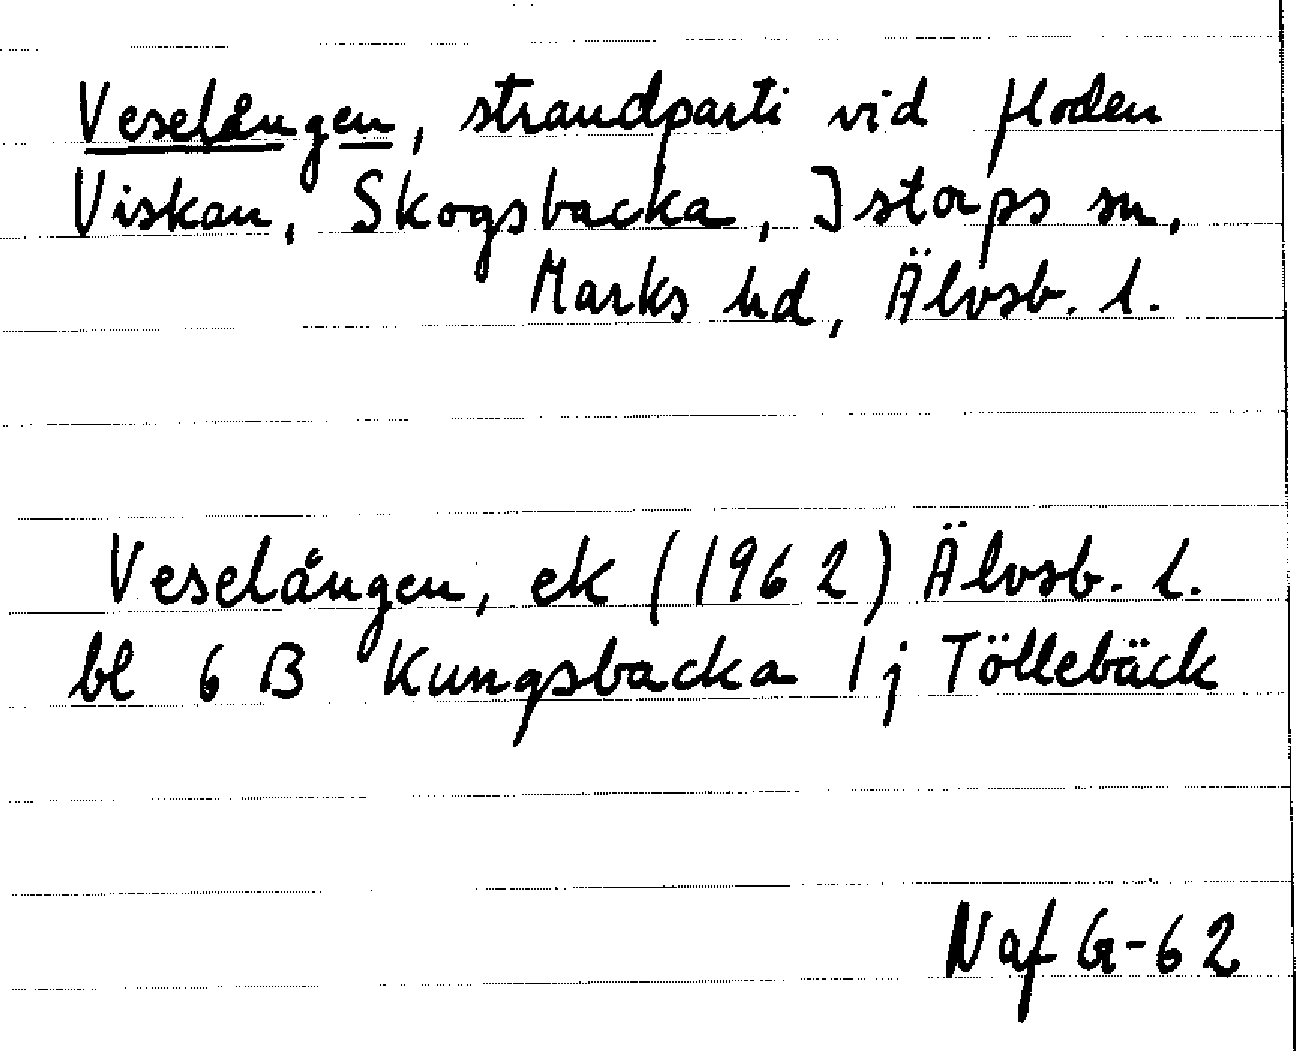 Veselången, strandparti vid floden
Viskan, Skogsbacka, Istorps sn,
Marks hd, Älvsb. l.
Veselången, ek (1962) Älvsb. l.
bl 6 B Kungsbacka 1 j Töllebäck
Naf G-62